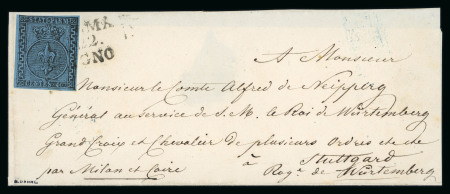 STATI PARM.
CENTES. 40
MA
22.
GNO
A Monsieur
Monsieur le Comte Alfred de Neipperg
Général au service de S. M. le Roi de Würtemberg
Grand Croix et Chevalier de plusieurs Ordres etc etc
à Stuttgard
par Milan et Coire
Roy.e de Würtemberg